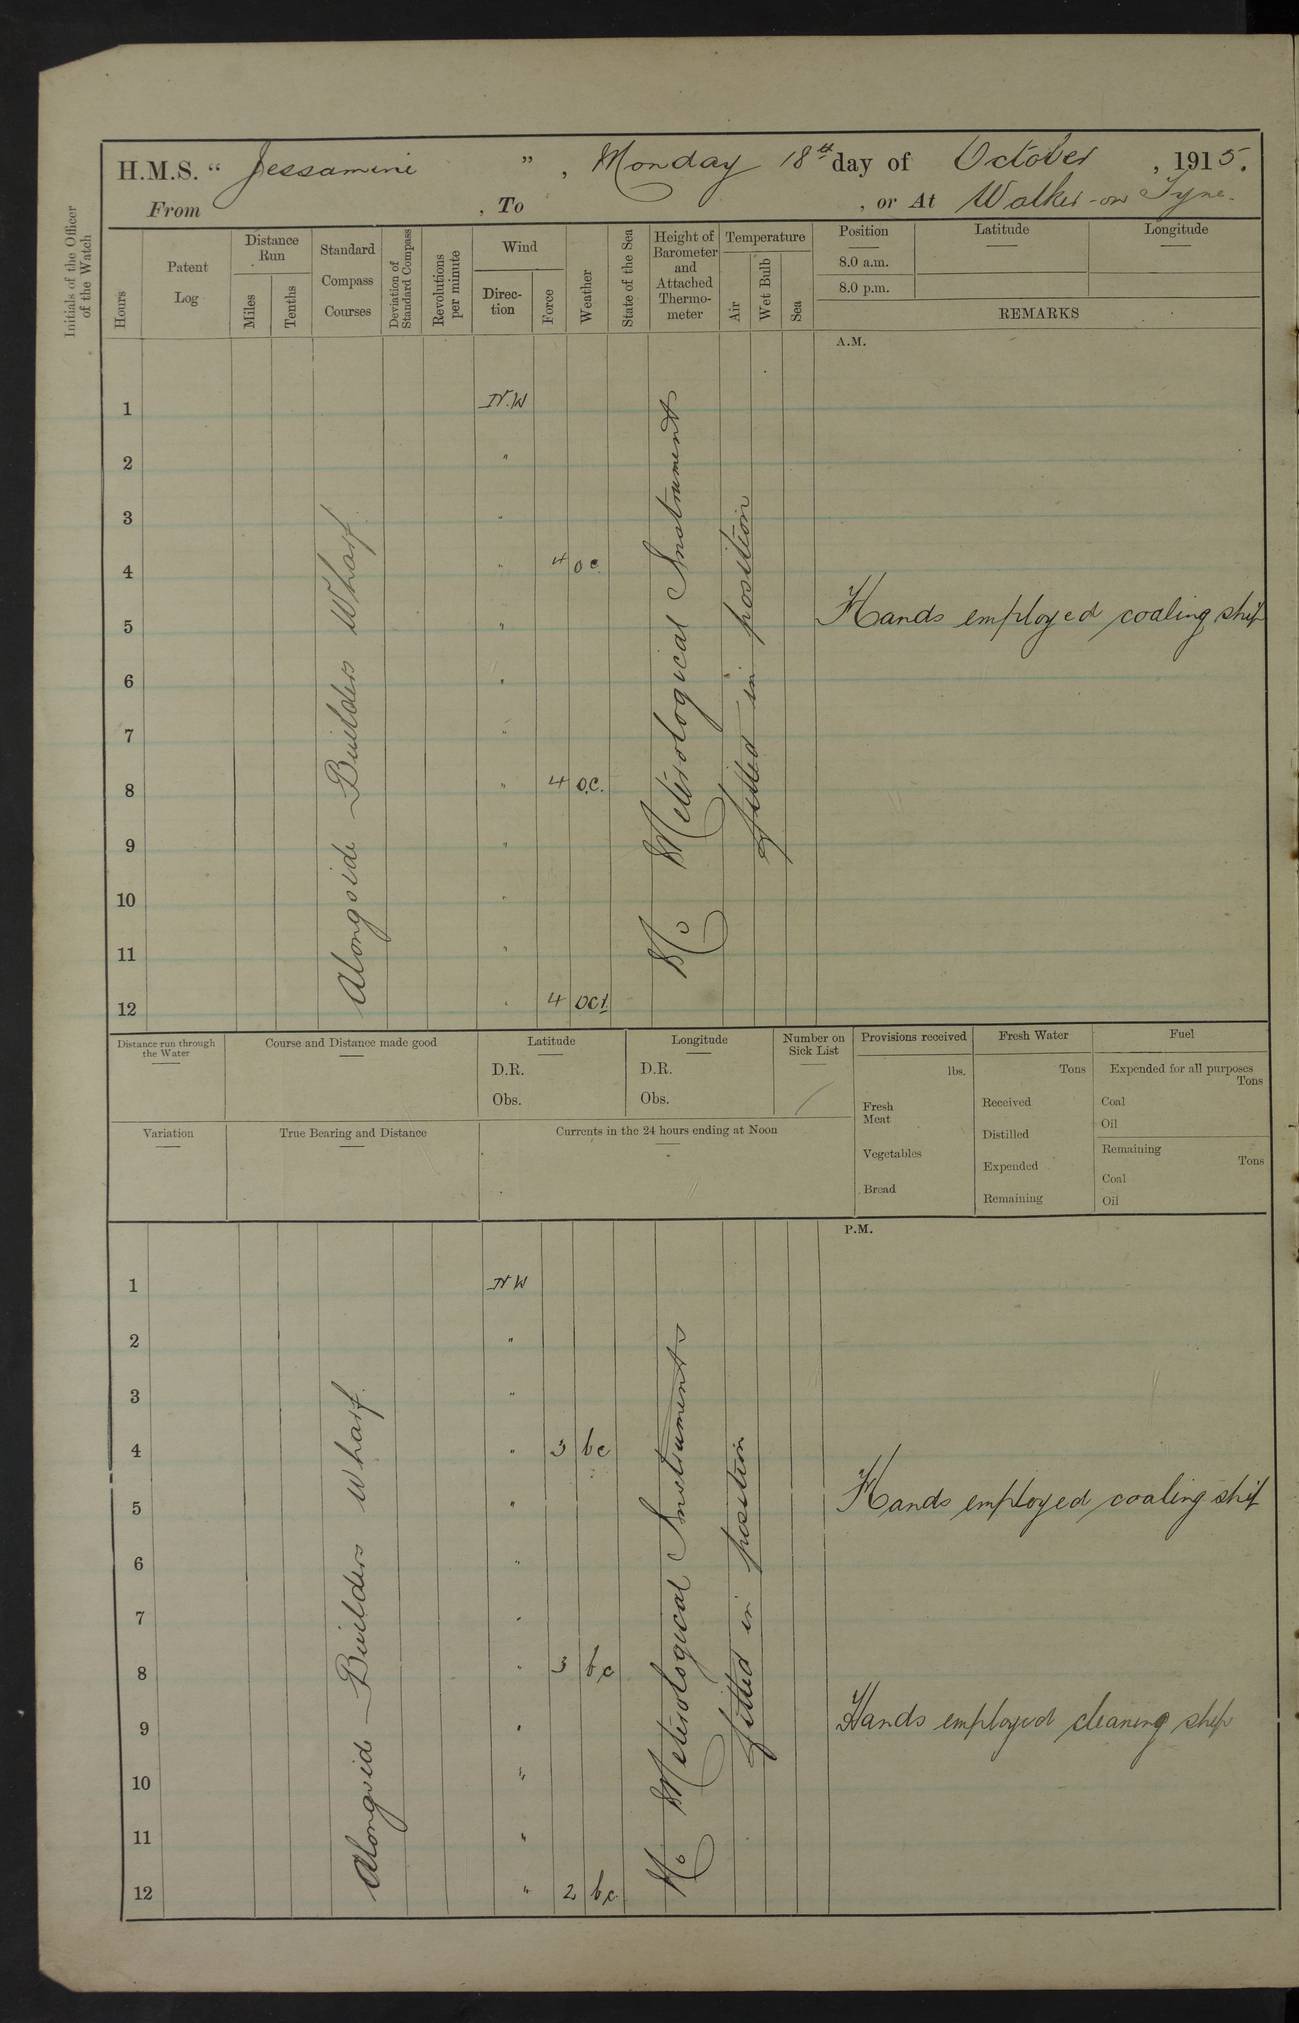 H.M.S. “ Jessamine ” , Monday 18th day of October , 1915.
From , To , or At Walker-on Tyne.
Initials of the Officer of the Watch
Hours
Patent Log
Distance Run
Miles
Tenths
Standard Compass Courses
Deviation of Standard Compass
Revolutions per minute
Wind
Direction
Force
Weather
State of the Sea
Height of Barometer and Attached Thermometer
Temperature
Air
Wet Bulb
Sea
Position
8.0 a.m.
8.0 p.m.
Latitude
Longitude
REMARKS
A.M.
1 N.W
2 "
3 "
4 " 4 o c
5 " Hands employed coaling ship
6 "
7 "
8 " 4 o.c.
9 "
10 "
11 "
12 " 4
Alongside Builders Wharf
No Meterological Instruments
fitted in position
Distance run through the Water
Course and Distance made good
Latitude
D.R.
Obs.
Longitude
D.R.
Obs.
Number on Sick List
Variation
True Bearing and Distance
Currents in the 24 hours ending at Noon
Provisions received
lbs.
Fresh Meat
Vegetables
Bread
Fresh Water
Tons
Received
Distilled
Expended
Remaining
Fuel
Expended for all purposes
Tons
Coal
Oil
Remaining
Tons
Coal
Oil
P.M.
1 N W
2 "
3 "
4 " 3 b c
5 " Hands employed coaling ship
6 "
7 "
8 " 3 b c
9 " Hands employed cleaning ship
10 "
11 "
12 " 2 b c
Alongside Builders Wharf
No Meterological Instruments
fitted in position